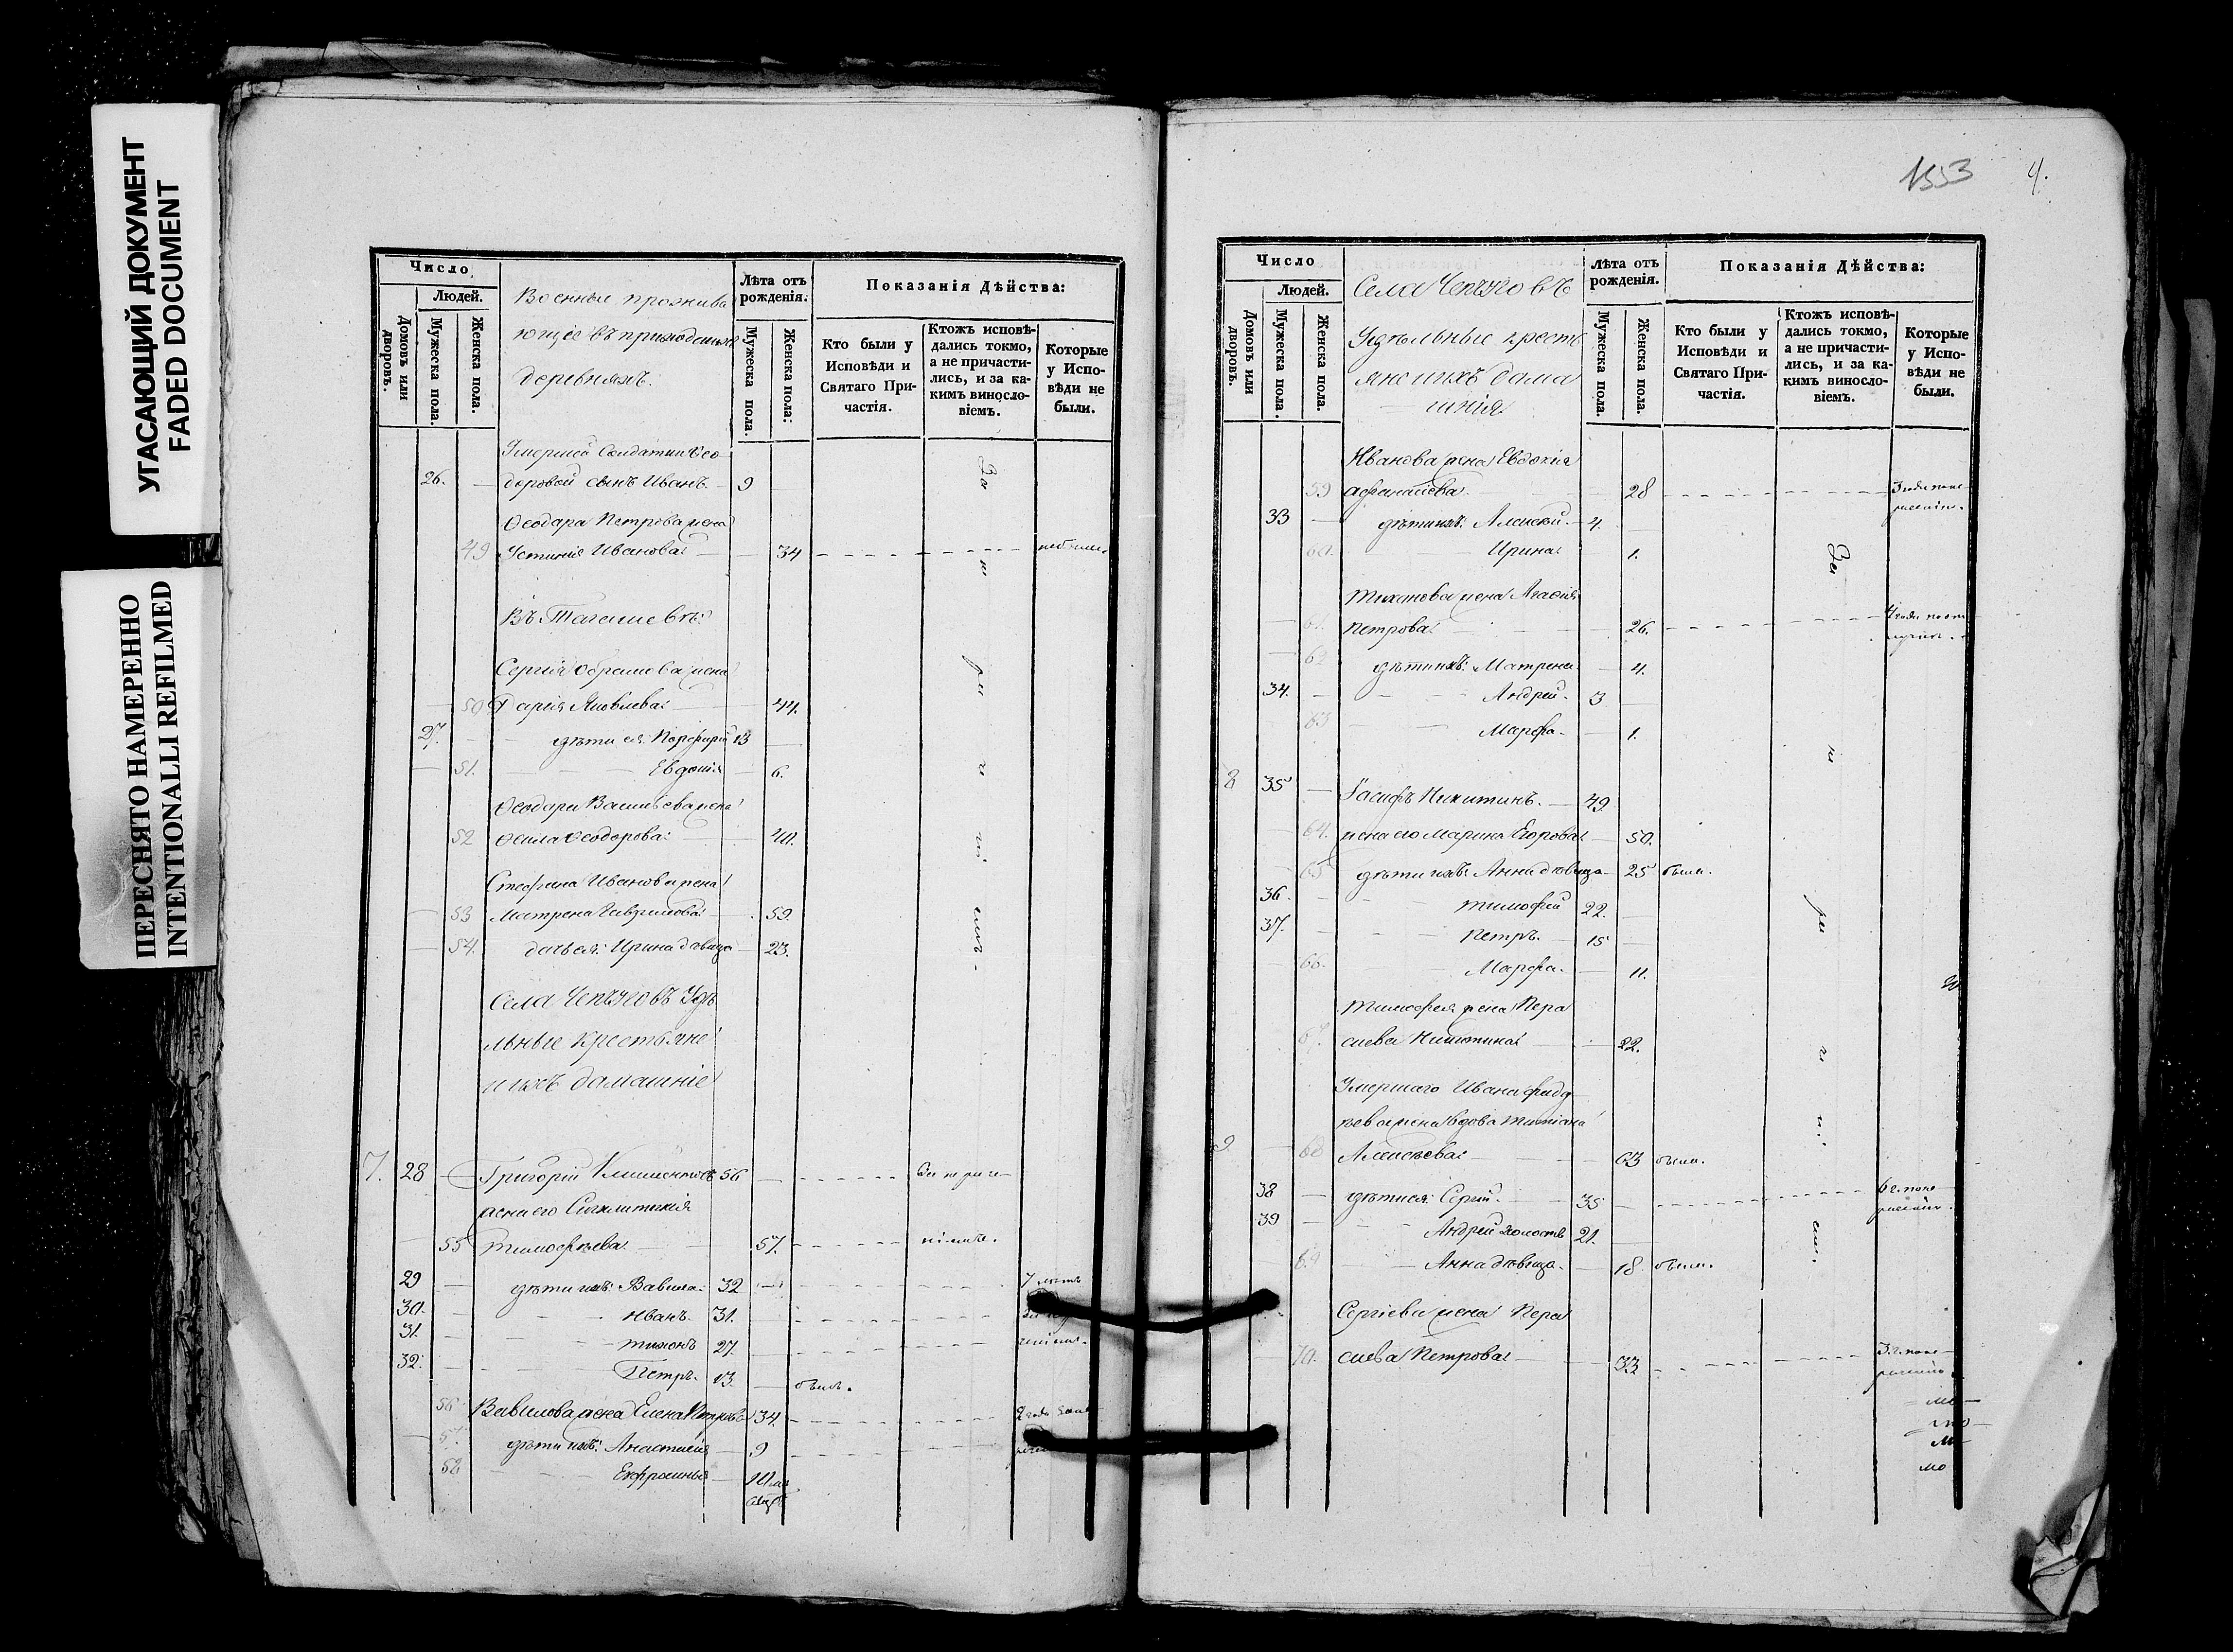 УГАСАЮЩИЙ ДОКУМЕНТ
FADED DOCUMENT
ПЕРЕСНЯТО НАМЕРЕННО
INTENTIONALLI REFILMED
Число
Людей.
Домовъ или дворовъ.
Мужеска пола.
Женска пола.
Военные прожива
ющіе въ приходскихъ
деревняхъ.
Лѣта отъ
рожденія:
Мужеска пола.
Женска пола:
Показанія Дѣйства:
Кто были у
Исповѣди и
Святаго При-
частія.
Ктожъ исповѣ-
дались токмо,
а не причасти-
лись, и за ка-
кимъ виносло-
віемъ.
Которые
у Испо-
вѣди не
были.
26. доровой сынъ Иванъ 9
Ѳеодора Петрова жена
49 Устинія Иванова 34
Сергія жена
50 Дарія Яковлева 44.
27. дѣти ея: Порфирій 13
51. Евдокія 6.
Ѳеодора Васильева жена
52 Ѳеодорова
Стефана Иванова жена
53 Матрена 59.
54. дочь ея: Ирина дѣвица 23.
Села Чепчуговъ Удѣ
льные Крестьяне
и ихъ домашніе
7. 28 Григорій 56
жена его Сигклитикія
55 Тимофеева 57.
29 дѣти ихъ: Вавила 32 7 лѣтъ
30. Иванъ 31.
31. Тихонъ 27.
32. Петръ 13 былъ.
56 Вавилова жена Елена Петрова 34
57. дѣти ихъ: Анастасія 9
58 Ефросинья
1553 4.
Число
Людей.
Домовъ или дворовъ.
Мужеска пола.
Женска пола.
Села Чепчуговъ
Удѣльные кресть
яне и ихъ дома
шнія
Лѣта отъ
рожденія.
Мужеска пола.
Женска пола.
Показанія Дѣйства:
Кто были у
Исповѣди и
Святаго При-
частія.
Ктожъ исповѣ-
дались токмо,
а не причасти-
лись, и за ка-
кимъ виносло-
віемъ.
Которые
у Испо-
вѣди не
были.
Иванова жена Евдокія
59 Афанасіева 28
33 дѣти ихъ: Алексѣй 4.
60. Ирина 1.
Тихонова жена Агафія
61. Петрова 26.
62 дѣти ихъ: Матрена 4.
34. Андрей 3
63 Марфа 1.
8 35 Іосифъ Никитинъ 49
64. жена его Марина Егорова 50.
65 дѣти ихъ: Анна дѣвица 25 была.
36. Тимофей 22.
37. Петръ 15
66. Марфа 11.
Тимофея жена Пара
67. скева Никитина 22.
Умершаго Ивана Фадд
ѣева жена вдова Татіана
9 68 Алексѣева 63 была.
38 дѣти ея: Сергій 35
39 Андрей холостъ 21.
69 Анна дѣвица 18 была.
Сергіева жена Пара
70. скева Петрова 33